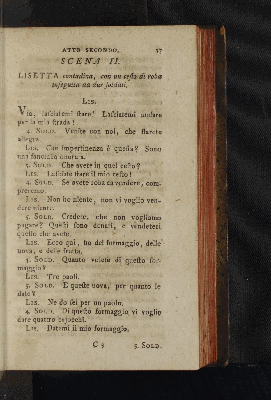 ATTO SECONDO. 37
SCENA II.
LISETTA contadina, con un cesto di roba
inseguita da due soldati.
LIS.
VIa, lasciatemi stare! Lasciatemi andare
per la mia strada!
4. SOLD. Venite con noi, che starete
allegra.
LIS. Che impertinenza è questa? Sono
una fanciulla onorata.
5. SOLD. Che avete in quel cesto?
LIS. Lasciate stare il mio cesto!
4. SOLD. Se avete roba da vendere, com-
preremo.
LIS. Non ho niente, non vi voglio ven-
dere niente.
5. SOLD. Credete, che non vogliamo
pagare? Questi sono denari, e vendeteci
quello che avete.
LIS. Ecco qui, ho del formaggio, delle
uova, e delle frutta.
5. SOLD. Quanto volete di questo for-
maggio?
LIS. Tre paoli.
5. SOLD. E queste uova, per quanto le
date?
LIS. Ne do sei per un paolo.
4. SOLD. Di questo formaggio vi voglio
dare quattro bajocchi.
LIS. Datemi il mio formaggio.
C 3 5. SOLD.